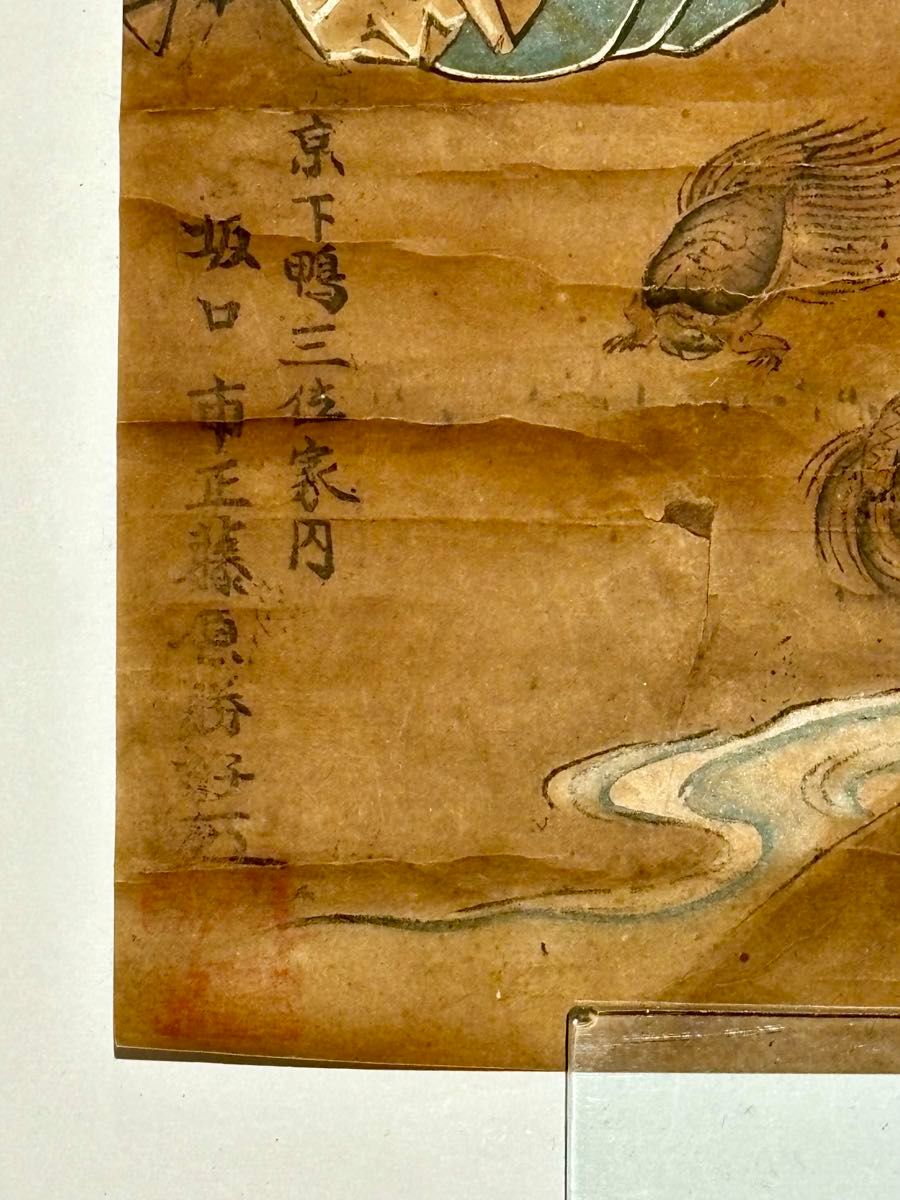 京下鴨三位家内
坂口市正藤原勝好